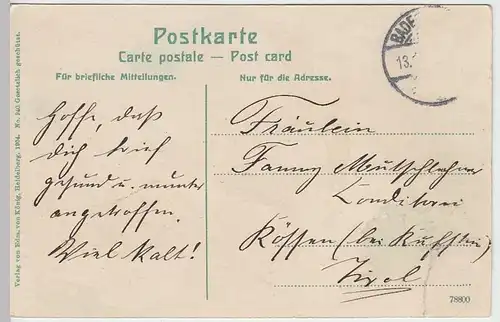 Postkarte
Carte postale — Post card
Für briefliche Mitteilungen.
Nur für die Adresse.
BADE
13.
Hoffe, daß
dich brief
gesund u. munter
angetroffen.
Viel Kalt!
Fräulein
Fanny Mutschlechner
Conditorei
Kössen (bei Kufstein)
Tirol
78800
Verlag von Edm. von König, Heidelberg. 1904. Gesetzlich geschützt.